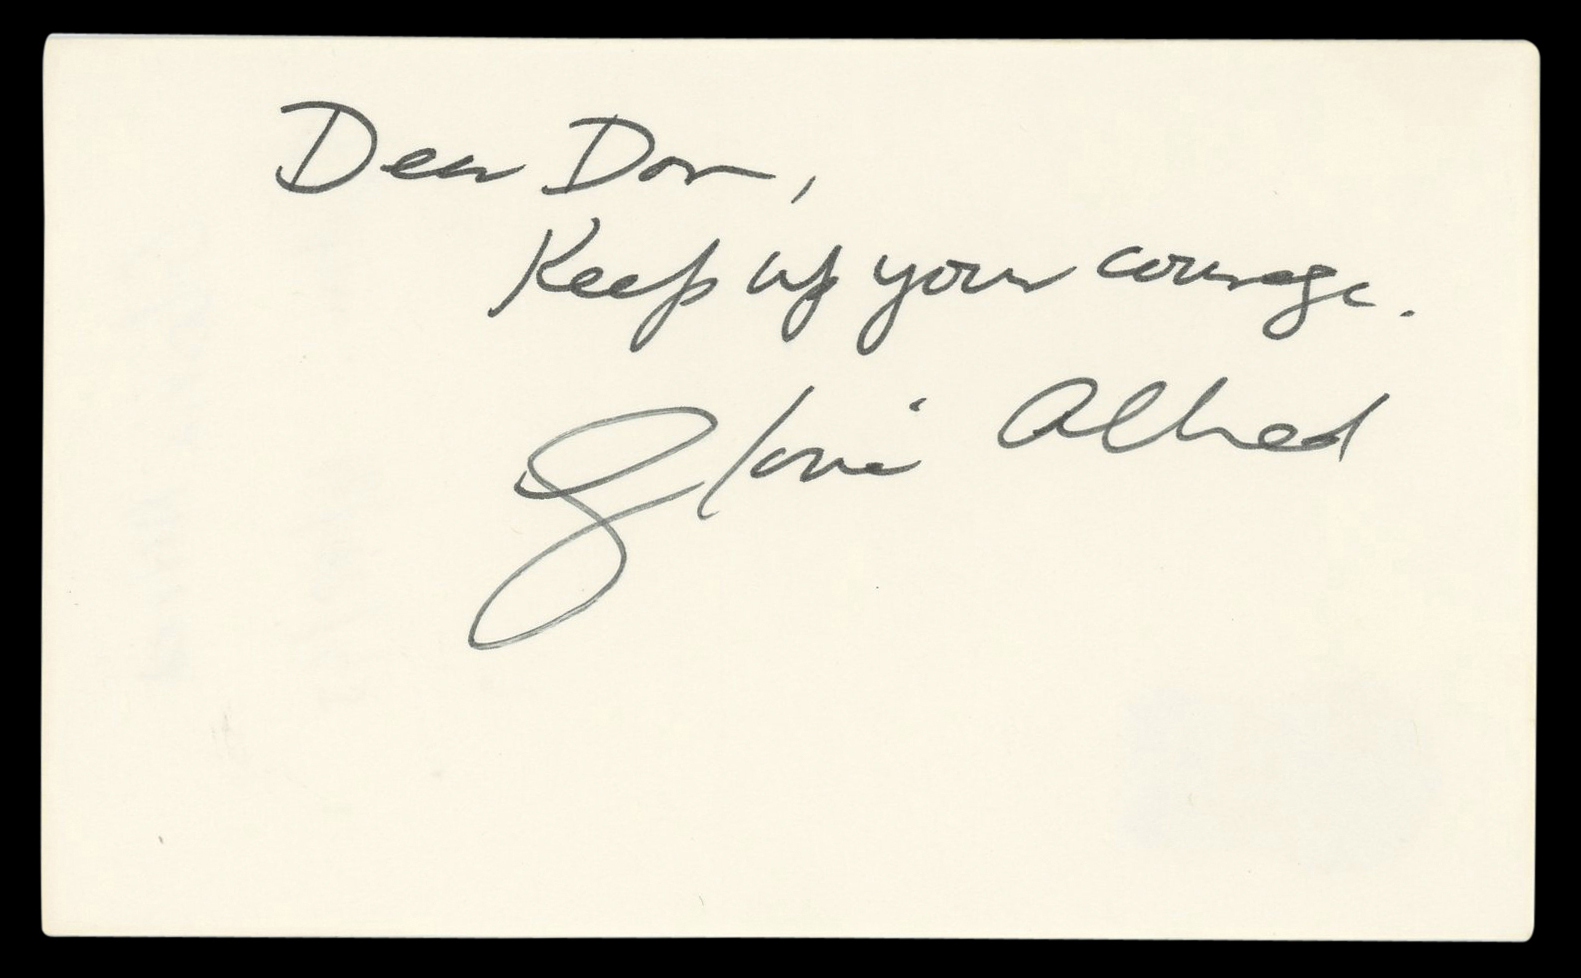 Dear Don,
Keep up your courage.
Gloria Allred